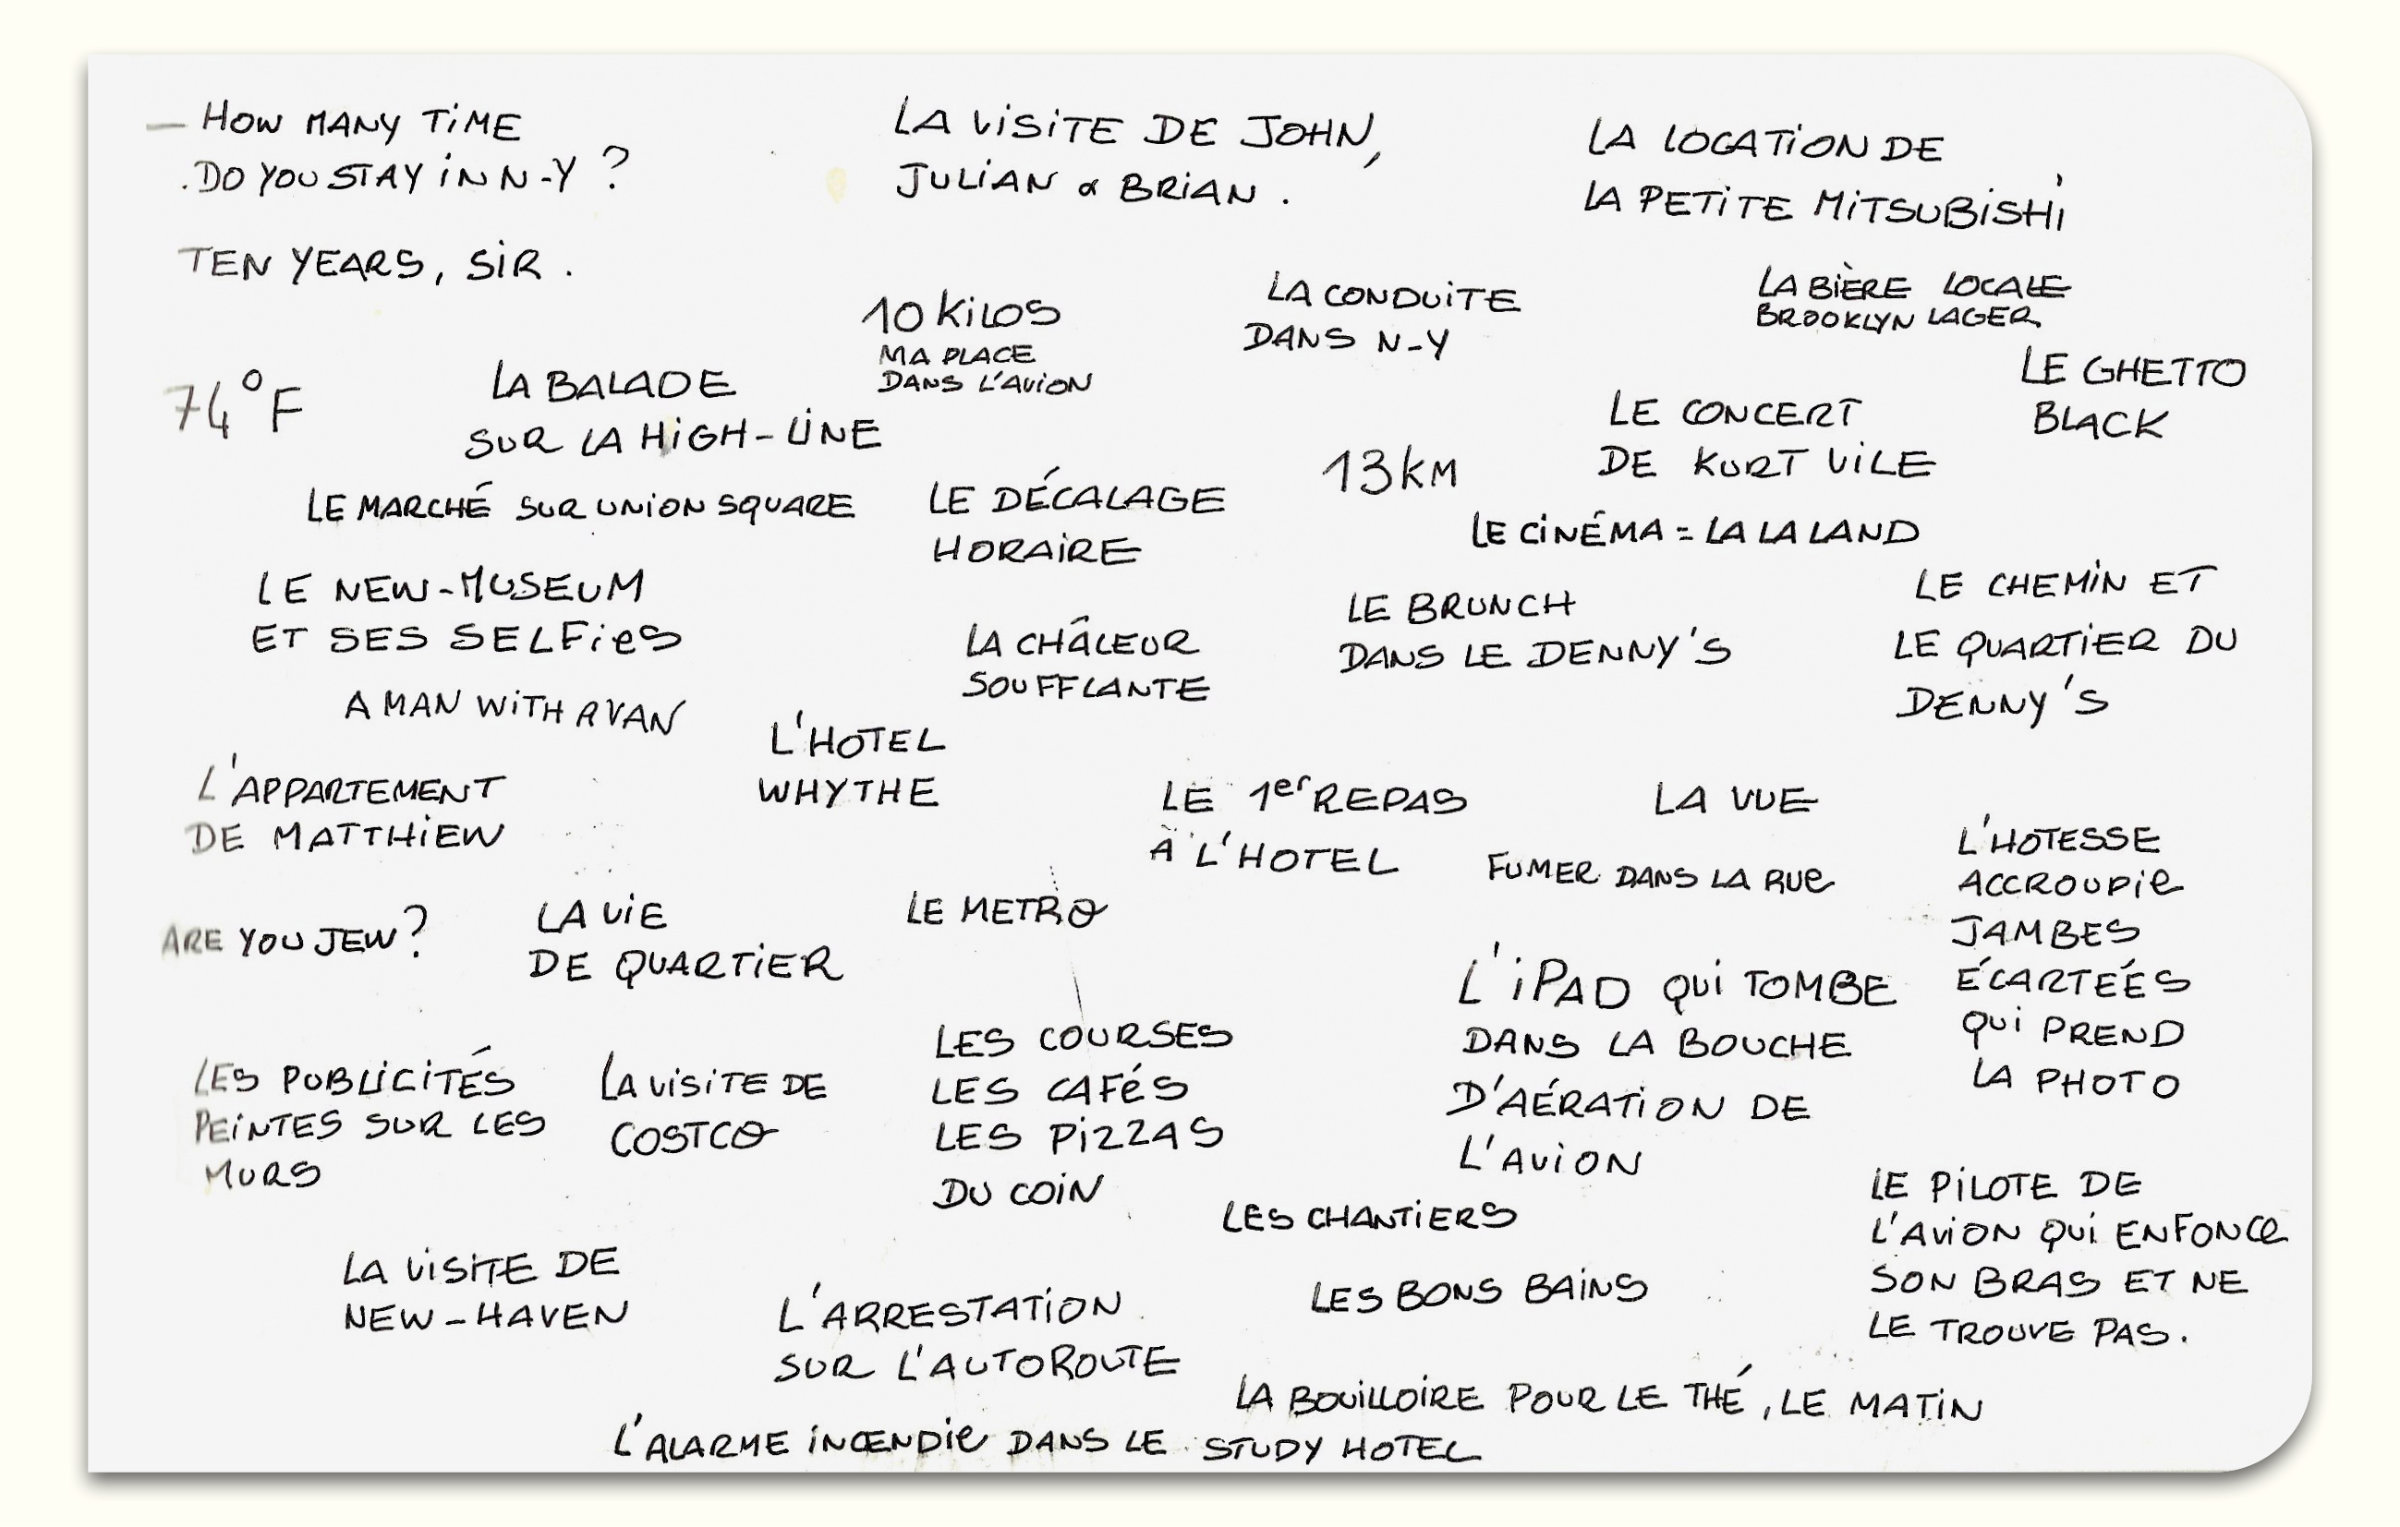 — HOW MANY TIME
. DO YOU STAY IN N-Y ?
TEN YEARS, SIR .
LA VISITE DE JOHN,
JULIAN & BRIAN .
LA LOCATION DE
LA PETITE MITSUBISHI
10 KILOS
MA PLACE
DANS L'AVION
LA CONDUITE
DANS N-Y
LA BIÈRE LOCALE
BROOKLYN LAGER
LE GHETTO
BLACK
74°F
LA BALADE
SUR LA HIGH-LINE
LE CONCERT
DE KURT VILE
13 KM
LE MARCHÉ SUR UNION SQUARE
LE DÉCALAGE
HORAIRE
LE CINÉMA = LA LA LAND
LE NEW-MUSEUM
ET SES SELFIES
LA CHÂLEUR
SOUFFLANTE
LE BRUNCH
DANS LE DENNY'S
LE CHEMIN ET
LE QUARTIER DU
DENNY'S
A MAN WITH A VAN
L'HOTEL
WHYTHE
L'APPARTEMENT
DE MATTHIEW
LE 1er REPAS
À L'HOTEL
LA VUE
FUMER DANS LA RUE
L'HOTESSE
ACCROUPIE
JAMBES
ÉCARTEÉS
QUI PREND
LA PHOTO
ARE YOU JEW ?
LA VIE
DE QUARTIER
LE METRO
L'iPAD QUI TOMBE
DANS LA BOUCHE
D'AÉRATION DE
L'AVION
LES PUBLICITÉS
PEINTES SUR LES
MURS
LA VISITE DE
COSTCO
LES COURSES
LES CAFÉS
LES PIZZAS
DU COIN
LES CHANTIERS
LE PILOTE DE
L'AVION QUI ENFONCE
SON BRAS ET NE
LE TROUVE PAS.
LA VISITE DE
NEW-HAVEN
L'ARRESTATION
SUR L'AUTOROUTE
LES BONS BAINS
LA BOUILLOIRE POUR LE THÉ, LE MATIN
L'ALARME INCENDIE DANS LE STUDY HOTEL